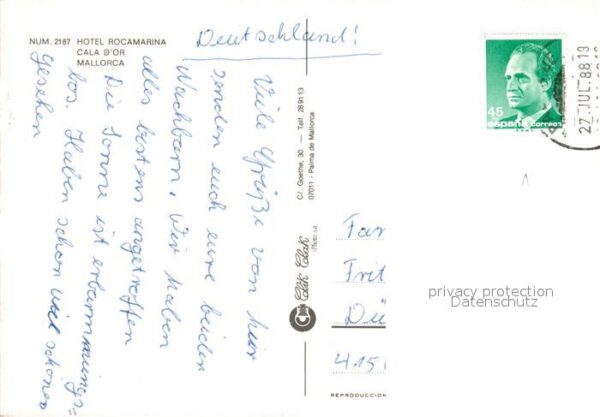 NUM. 2187 HOTEL ROCAMARINA
CALA D'OR
MALLORCA
Deutschland!
Viele Grüße von hier
senden euch eure beiden
Nachbarn. Wir haben
alles bestens angetroffen
Die Sonne ist erbarmungs=
los. Haben schon viel schönes
gesehen
C/. Goethe, 30 — Telf. 289113
07011 - Palma de Mallorca
Clak Clak
REPRODUCCION
Fam
Frit
Dü
415
45
españa correos
27.JUL.88 19
privacy protection
Datenschutz